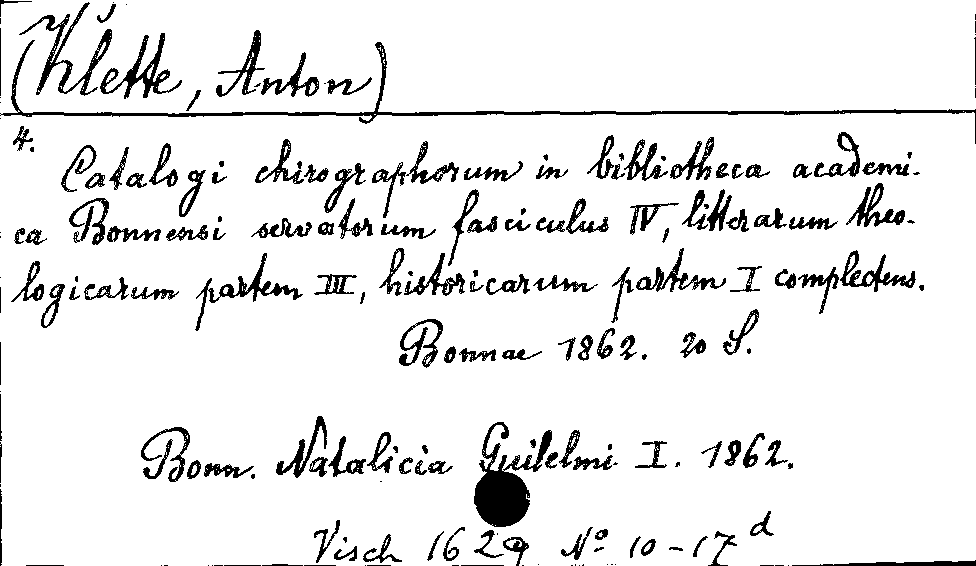 (Klette, Anton)
4.
Catalogi chirographorum in bibliotheca academi-
ca Bonnensi servatorum fasciculus IV, litterarum theo-
logicarum partem III, historicarum partem I complectens.
Bonnae 1862. 20 S.
Bonn. Natalicia Guilelmi I. 1862.
Visch 1629 No 10-17d